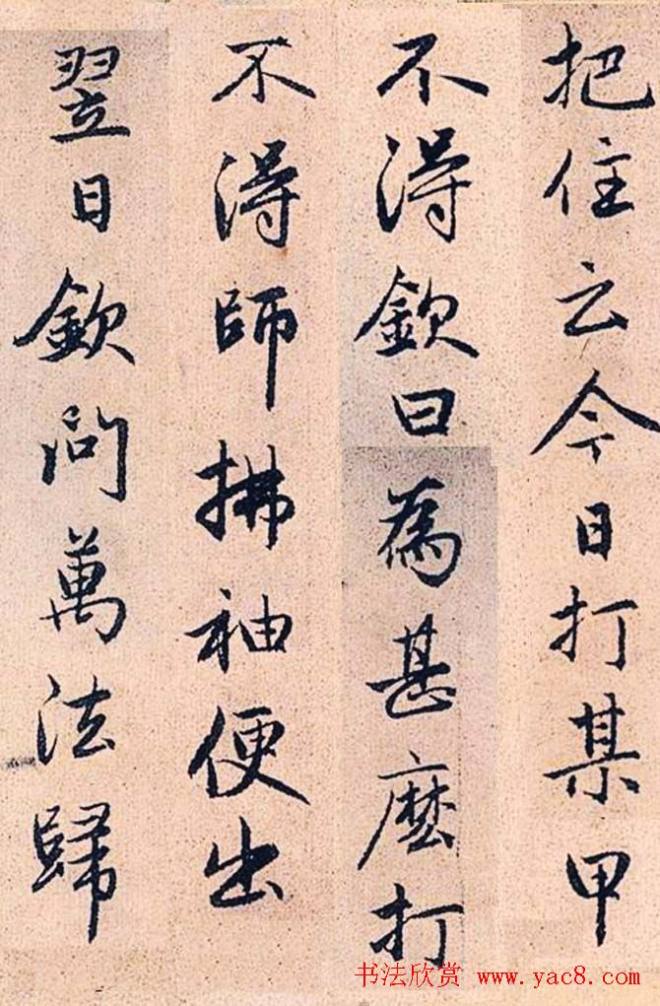 把住云今日打某甲
不得欽曰為甚麼打
不得師拂袖便出
翌日欽問萬法歸
书法欣赏 www.yac8.com